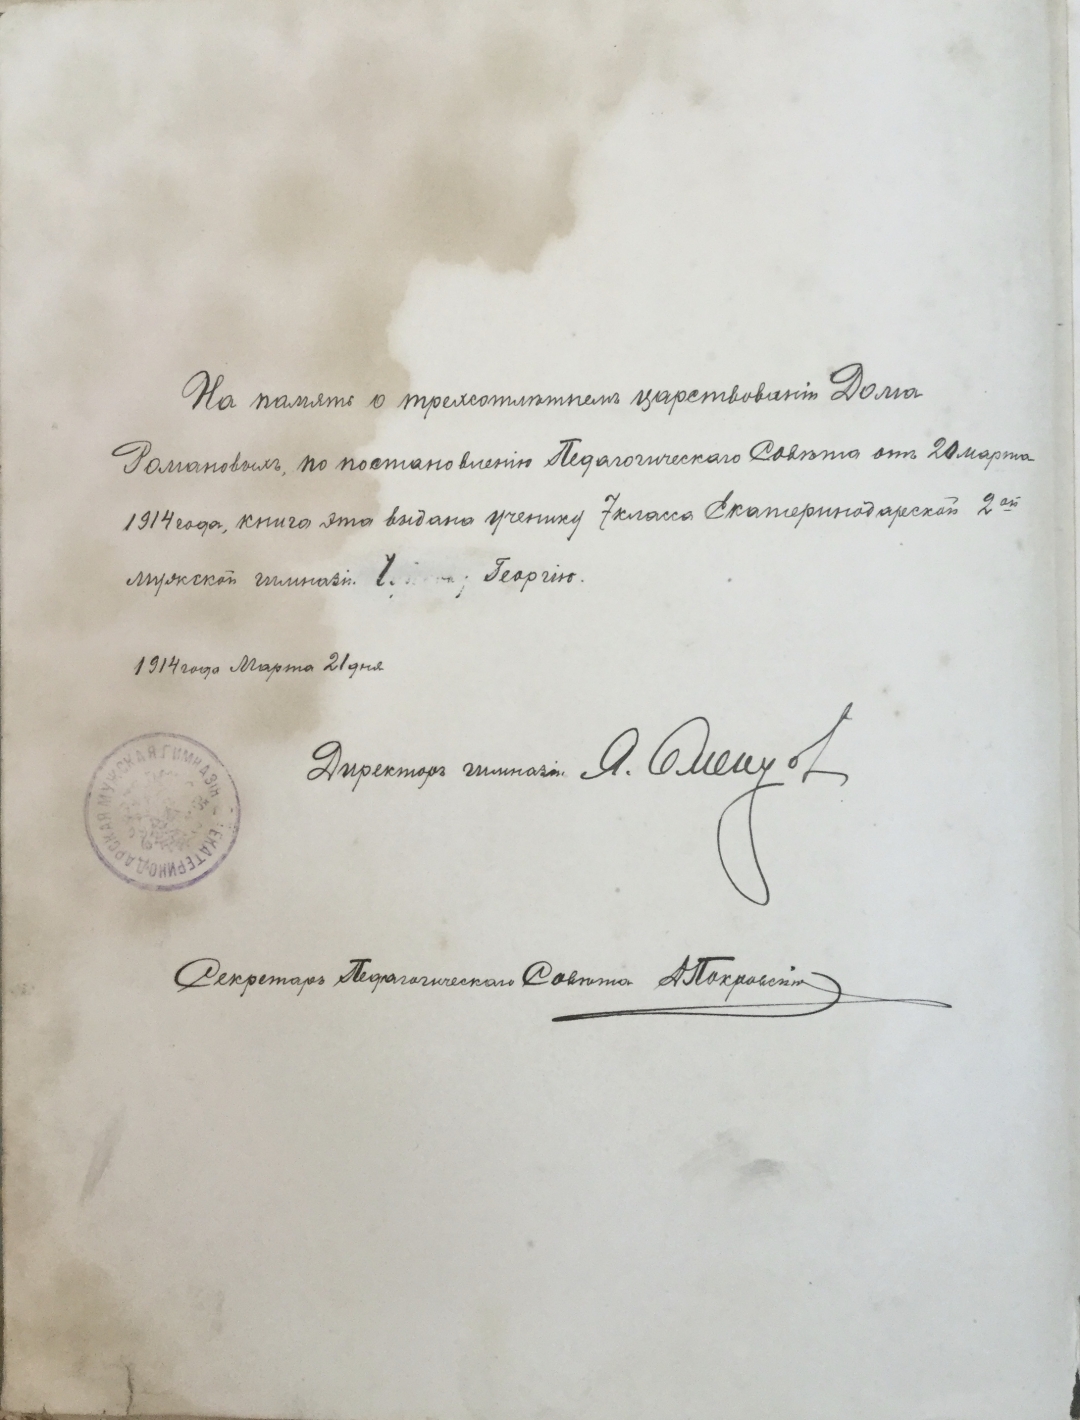 На память о трехсотлѣтнемъ царствованіи Дома
Романовыхъ, по постановленію Педагогическаго Совѣта отъ 20 марта
1914 года, книга эта выдана ученику 7 класса Екатеринодарской 2ой
мужской гимназіи Георгію.
1914 года Марта 21 дня
ЕКАТЕРИНОДАРСКАЯ МУЖСКАЯ ГИМНАЗІЯ
Директоръ гимназіи
Секретарь Педагогическаго Совѣта А Покровскій